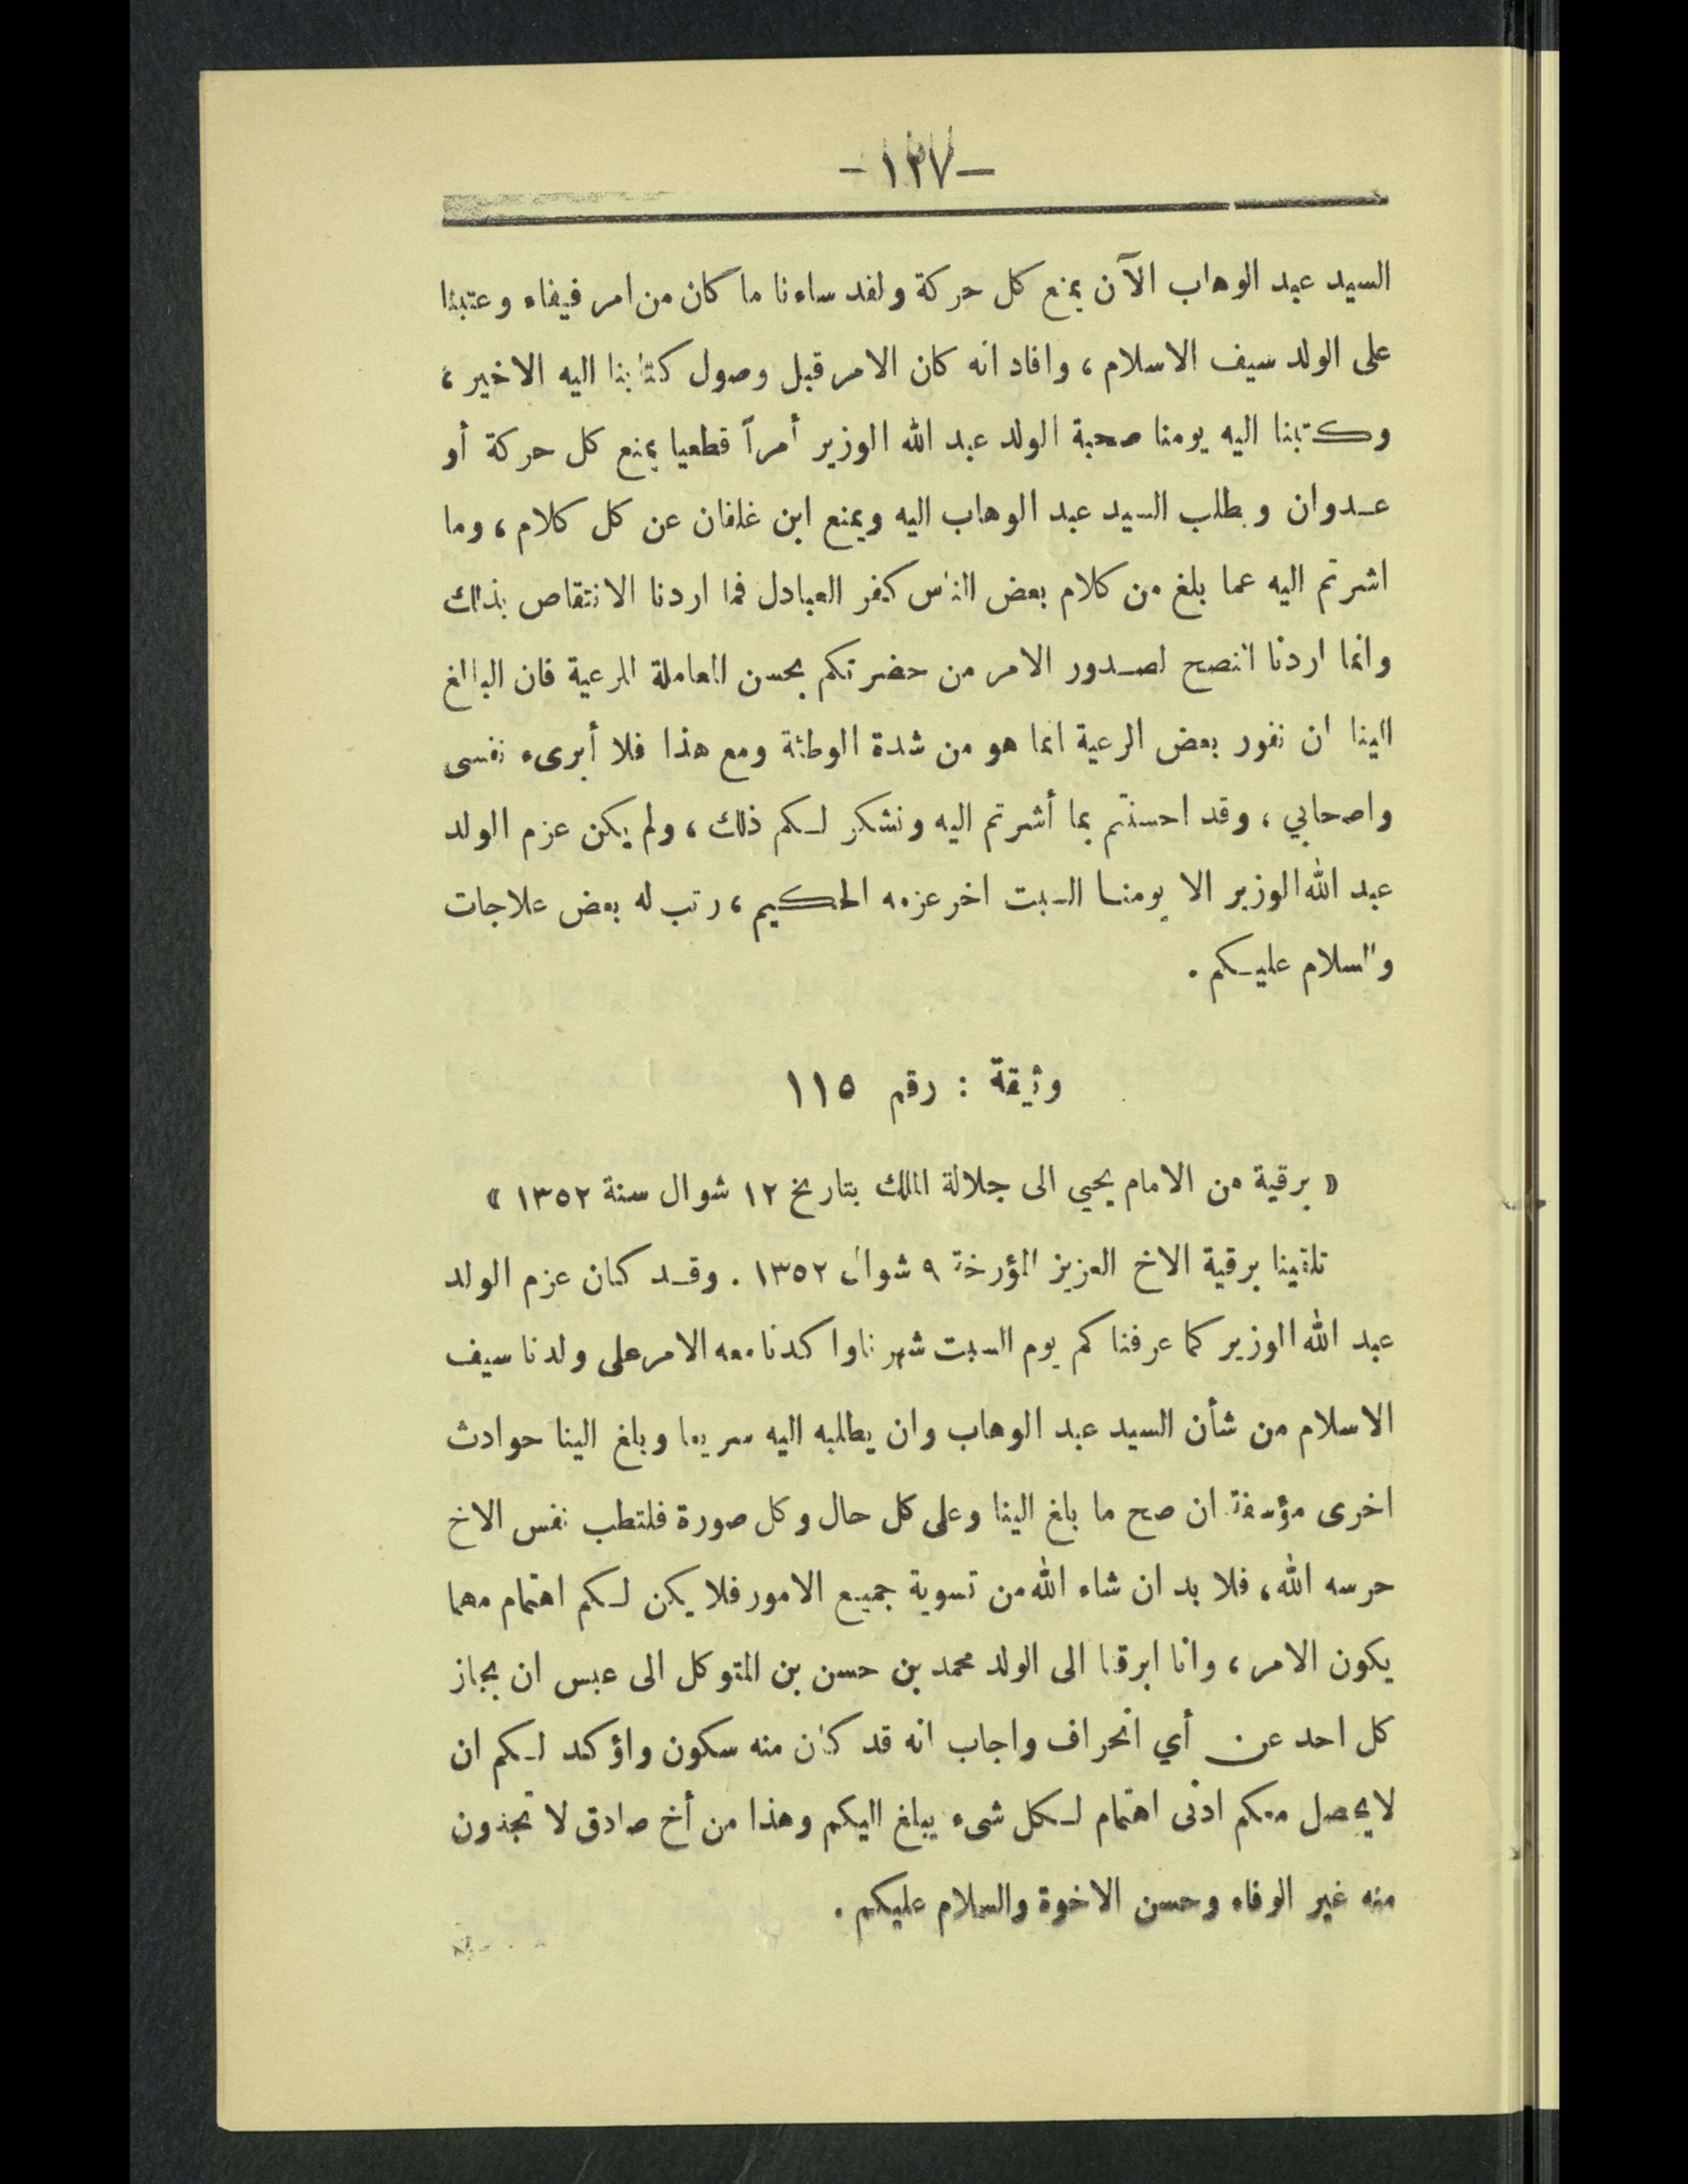 —١٣٧—
السيد عبد الوهاب الآن بمنع كل حركة ولقد ساءنا ما كان من امر فيفاء وعتبنا
على الولد سيف الاسلام ، وافاد انه كان الامر قبل وصول كتابنا اليه الاخير ،
وكتبنا اليه يومنا صحبة الولد عبد الله الوزير أمراً قطعيا بمنع كل حركة أو
عدوان وبطلب السيد عبد الوهاب اليه وبمنع ابن غلفان عن كل كلام ، وما
اشرتم اليه عما بلغ من كلام بعض الناس كيفر العبادل فما اردنا الانتقاص بذلك
وانما اردنا النصح لصدور الامر من حضرتكم بحسن المعاملة للرعية فان البالغ
الينا ان نفور بعض الرعية انما هو من شدة الوطئة ومع هذا فلا أبرىء نفسى
واصحابي ، وقد احسنتم بما أشرتم اليه ونشكر لكم ذلك ، ولم يكن عزم الولد
عبد الله الوزير الا يومنا السبت اخر عزمه الحكيم ، رتب له بعض علاجات
والسلام عليكم .
وثيقة : رقم ١١٥
« برقية من الامام يحيي الى جلالة الملك بتاريخ ١٢ شوال سنة ١٣٥٢ »
تلقينا برقية الاخ العزيز المؤرخة ٩ شوال ١٣٥٢ . وقد كان عزم الولد
عبد الله الوزير كما عرفناكم يوم السبت شهرنا واكدنا معه الامر على ولدنا سيف
الاسلام من شأن السيد عبد الوهاب وان يطلبه اليه سريعا وبلغ الينا حوادث
اخرى مؤسفة ان صح ما بلغ الينا وعلى كل حال وكل صورة فلتطب نفس الاخ
حرسه الله ، فلا بد ان شاء الله من تسوية جميع الامور فلا يكن لكم اهتمام مهما
يكون الامر ، وانا ابرقنا الى الولد محمد بن حسن بن المتوكل الى عبس ان يجاز
كل احد عن أي انحراف واجاب انه قد كان منه سكون واؤكد لكم ان
لا يحصل معكم ادنى اهتمام لكل شىء يبلغ اليكم وهذا من أخ صادق لا تجدون
منه غير الوفاء وحسن الاخوة والسلام عليكم .